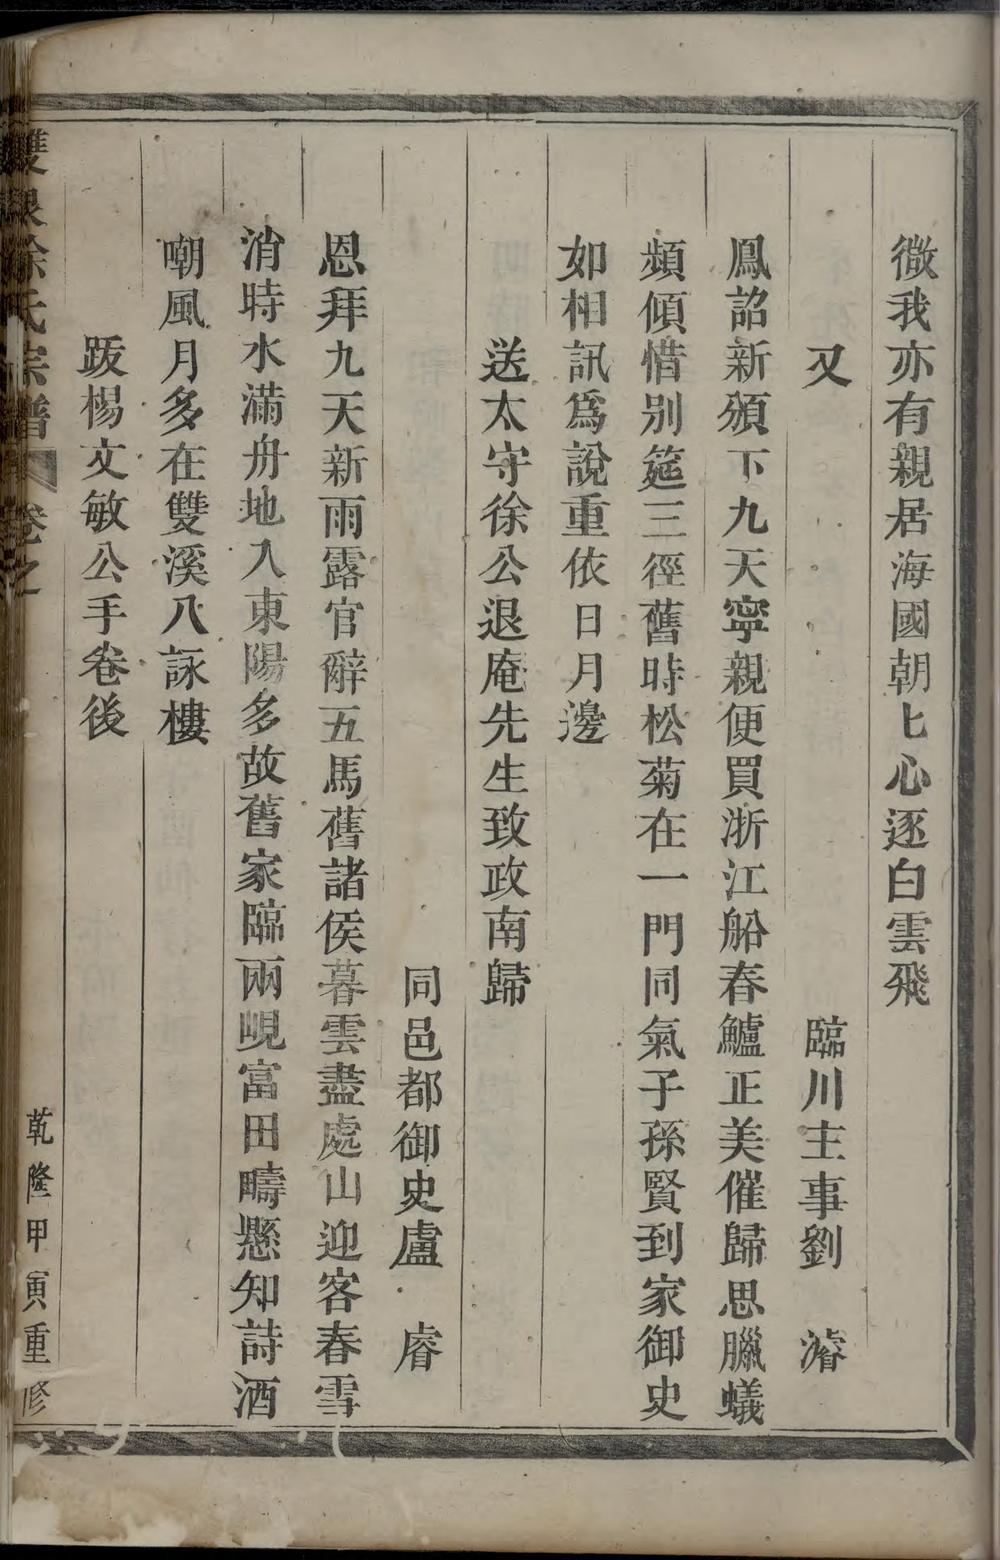 微我亦有親居海國朝匕心逐白雲飛
又　臨川主事劉　濬
鳳詔新頒下九天寧親便買浙江船春鱸正美催歸思臘蟻
頻傾惜别筵三徑舊時松菊在一門同氣子孫賢到家御史
如相訊爲說重依日月邊
送太守徐公退庵先生致政南歸
同邑都御史盧　睿
恩拜九天新雨露官辭五馬舊諸侯暮雲盡處山迎客春雪
消時水滿舟地入東陽多故舊家臨兩峴富田疇懸知詩酒
嘲風月多在雙溪八詠樓
跋楊文敏公手卷後
雙泉徐氏宗譜　卷之
乾隆甲寅重修